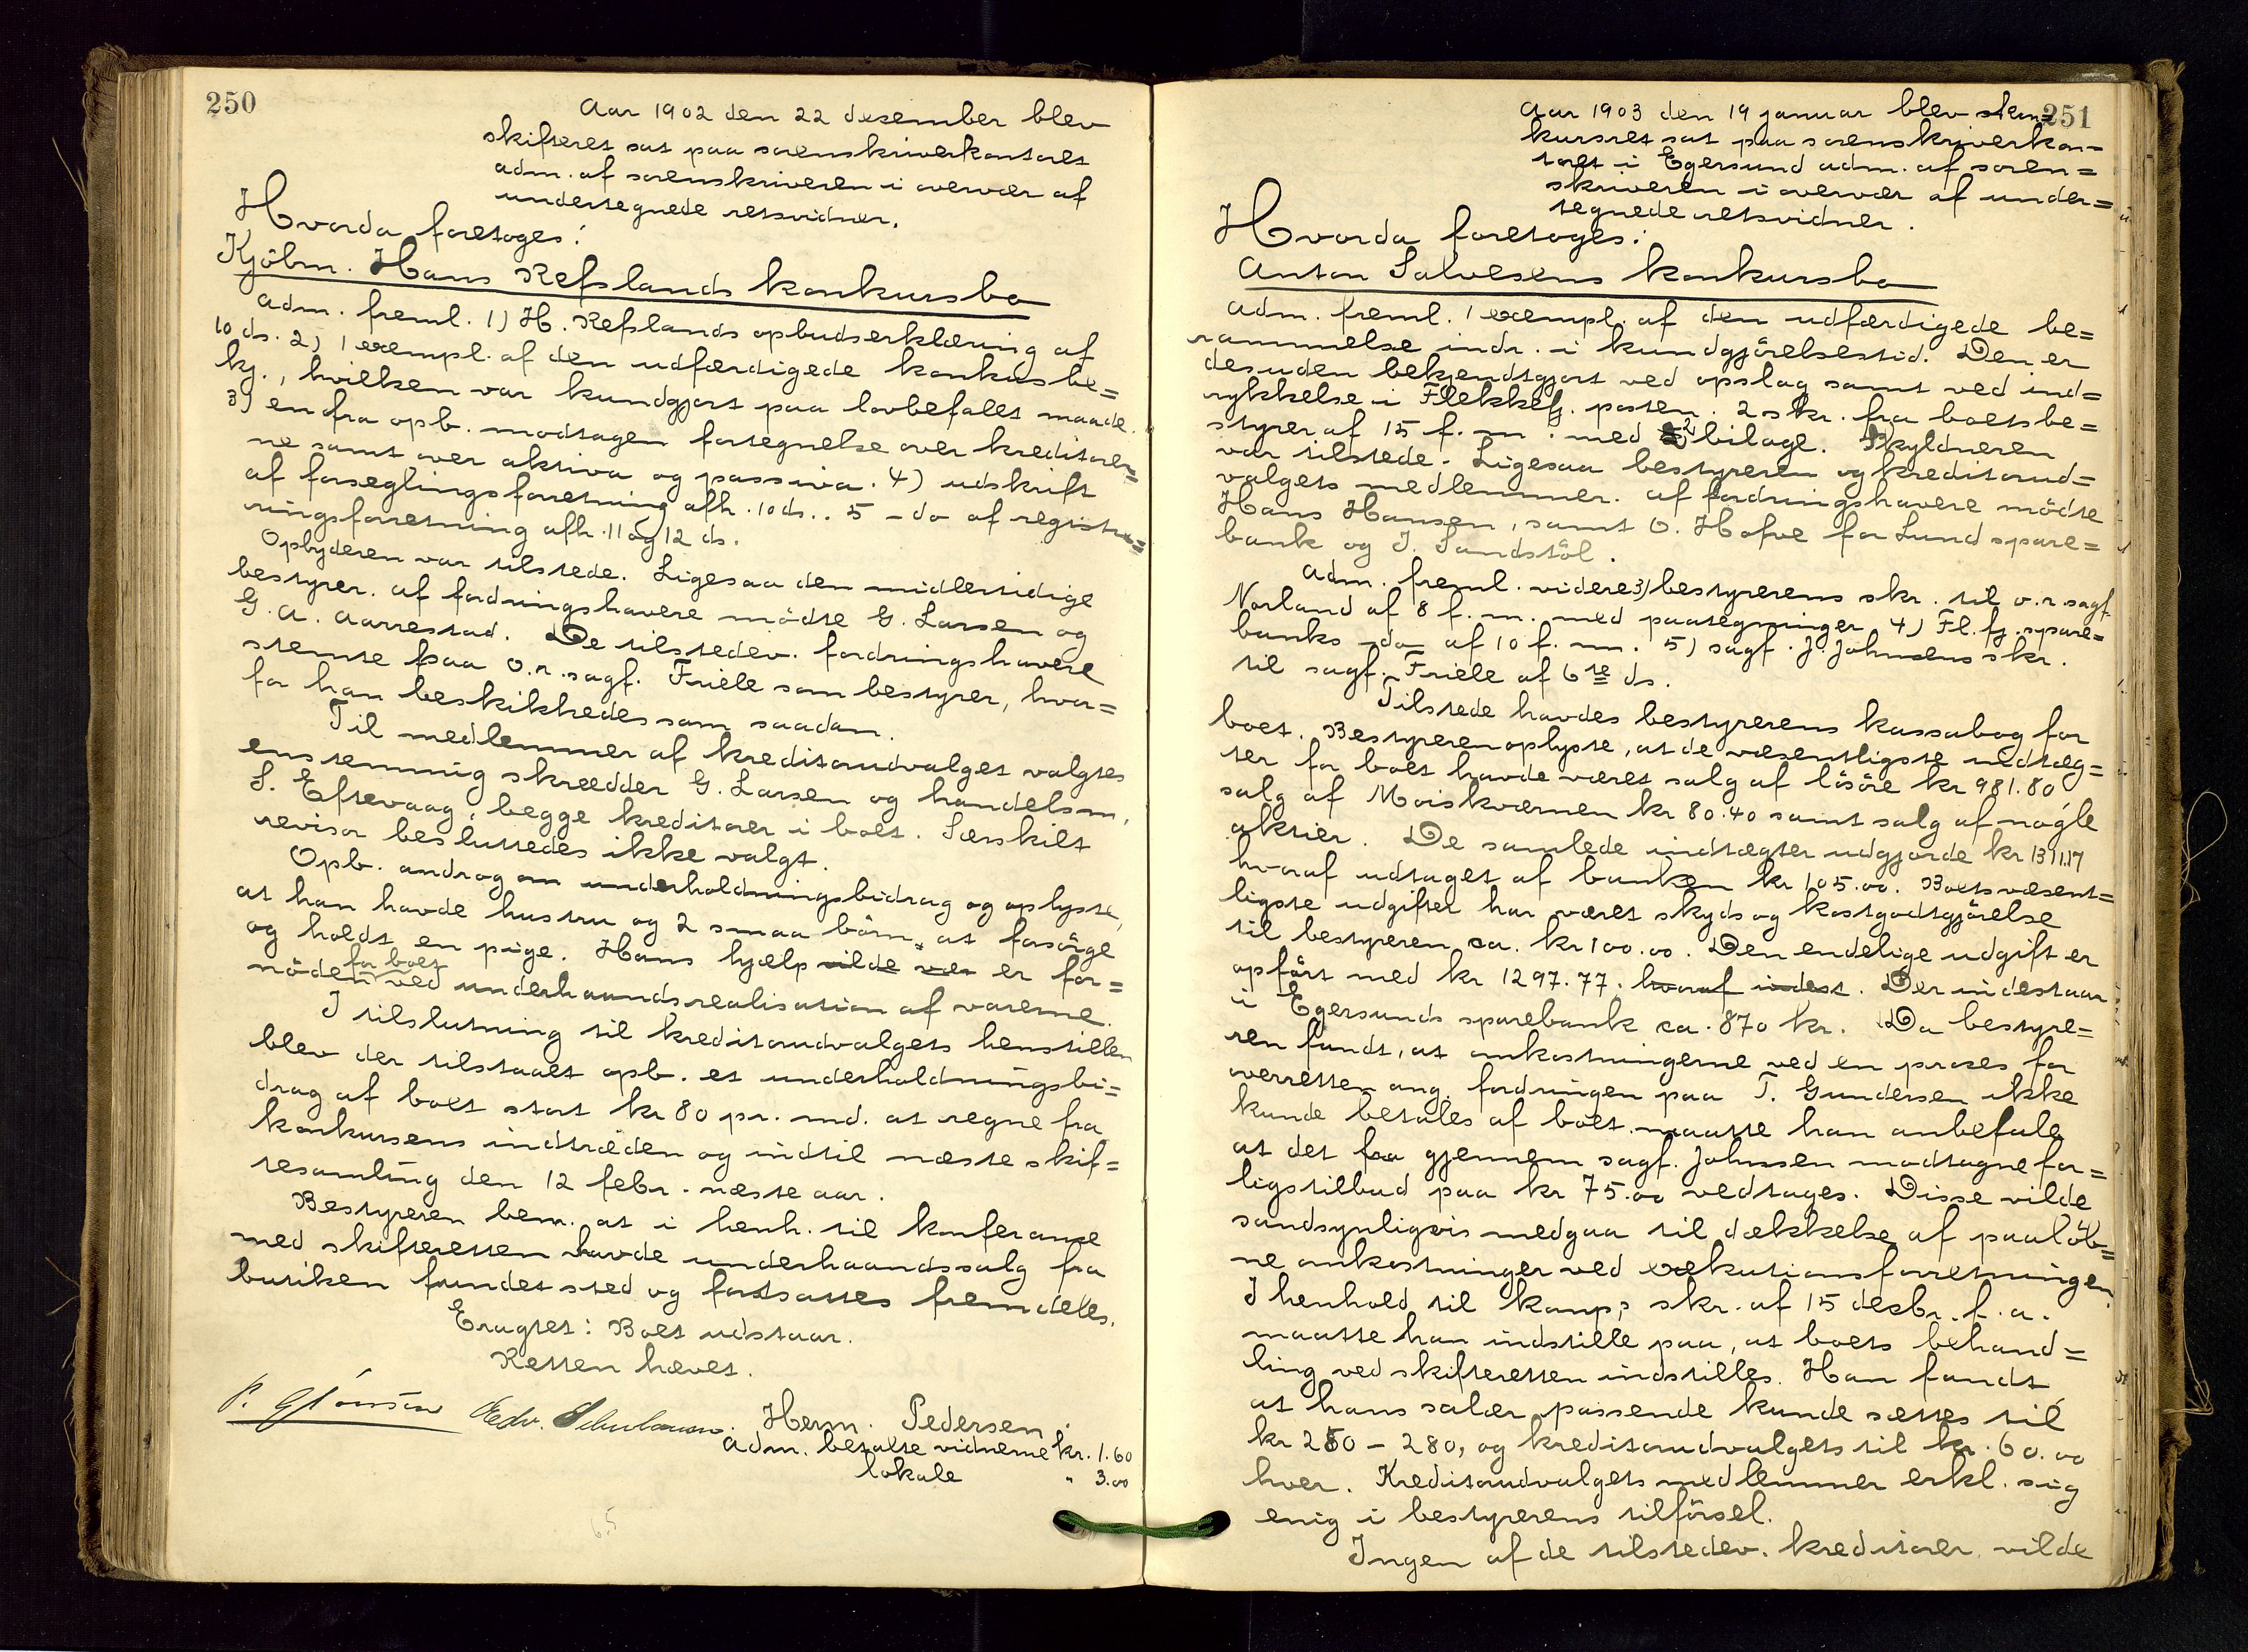 250
Aar 1902 den 22 desember blev
skifteret sat paa sorenskriverkontoret
adm. af sorenskriveren i overvær af
undertegnede retsvidner.
Hvorda foretoges:
Kjöbm. Hans Refslands konkursbo
Adm. freml. 1) H. Refslands opbudserklæring af
10 ds. 2) 1 exempl. af den udfærdigede konkursbe=
kj., hvilken var kundgjort paa lovbefalet maade.
3) en fra opb. modtagen fortegnelse over kreditorer=
ne samt over aktiva og passiva. 4) udskrift
af forseglingsforretning afh. 10 ds.. 5 - do af registre=
ringsforretning afh. 11 og 12 ds.
Opbyderen var tilstede. Ligesaa den midlertidige
bestyrer. Af fordringshavere mödte G. Larsen og
G. A. Aarrestad. De tilstedev. fordringshavere
stemte paa o.r.sagf. Friele som bestyrer, hvor=
for han beskikkedes som saadan.
Til medlemmer af kreditorudvalget valgtes
enstemmig skrædder G. Larsen og handelsm.
S. Eftevaag, begge kreditorer i boet. Særskilt
revisor besluttedes ikke valgt.
Opb. androg om underholdningsbidrag og oplyste,
at han havde hustru og 2 smaa börn at forsörge
og holdt en pige. Hans hjælp vilde vær er for=
nöden for boet ved underhaandsrealisation af varerne.
I tilslutning til kreditorudvalgets henstillen
blev der tilstaaet opb. et underholdningsbi=
drag af boet stort kr 80 pr. md. at regne fra
konkursens indtræden og indtil næste skif=
tesamling den 12 febr. næste aar.
Bestyreren bem. at i henh. til konferanse
med skifteretten havde underhaandssalg fra
butiken fundet sted og fortsattes fremdeles.
Eragtet: Boet udstaar.
Retten hævet.
Herm. Pedersen.
Adm. betalte vidnerne kr. 1.60
lokale " 3.00
65
251
Aar 1903 den 19 januar blev skon=
kursret sat paa sorenskriverkon=
toret i Egersund adm. af soren=
skriveren i overvær af under=
tegnede retsvidner.
Hvorda foretoges:
Anton Salvesens konkursbo
Adm. freml. 1 exempl. af den udfærdigede be=
rammelse indr. i kundgjörelsestid. Den er
desuden bekjendtgjort ved opslag samt ved ind=
rykkelse i Flekkefj. posten. 2 skr. fra boets be=
styrer af 15 f.m. med 2 bilage. Skyldneren
var tilstede. Ligesaa bestyreren og kreditorud=
valgets medlemmer. Af fordringshavere mödte
Hans Hansen, samt O. Hofve for Lund spare=
bank og J. Sandstöl.
Adm. freml. videre 3) bestyrerens skr. til o.r.sagf.
Norland af 8 f.m. med paategninger 4) Fl.fj. spare=
banks do af 10 f.m. 5) sagf. J. Johnsens skr.
til sagf. Friele af 6te ds.
Tilstede havdes bestyrerens kassabog for
boet. Bestyreren oplyste, at de væsentligste indtæg=
ter for boet havde været salg af lösöre kr 981.80
salg af Moiskværnen kr 80.40 samt salg af nogle
aktier. De samlede indtægter udgjorde kr 1311.17
hvoraf udtaget af banken kr 105.00. Boets væsent=
ligste udgifter har været skyds og kostgodtgjörelse
til bestyreren ca. kr 100.00. Den endelige udgift er
opfört med kr 1297.77. hvoraf indest. Der indestaar
i Egersunds sparebank ca. 870 kr. Da bestyre=
ren fandt, at omkostningerne ved en proces for
overretten ang. fordringen paa T. Gundersen ikke
kunde betales af boet maatte han anbefale
at det fra gjennem sagf. Johnsen modtagne for=
ligstilbud paa kr 75.00 vedtages. Disse vilde
sandsynligvis medgaa til dækkelse af paalöb=
ne omkostninger ved exekutionsforretningen.
I henhold til komp.s skr. af 15 desbr. f.a.
maatte han indstille paa, at boets behand=
ling ved skifteretten indstilles. Han fandt
at hans salær passende kunde sættes til
kr 250 - 280, og kreditorudvalgets til kr. 60.00
hver. Kreditorudvalgets medlemmer erkl. sig
enig i bestyrerens tilförsel.
Ingen af de tilstedev. kreditorer vilde